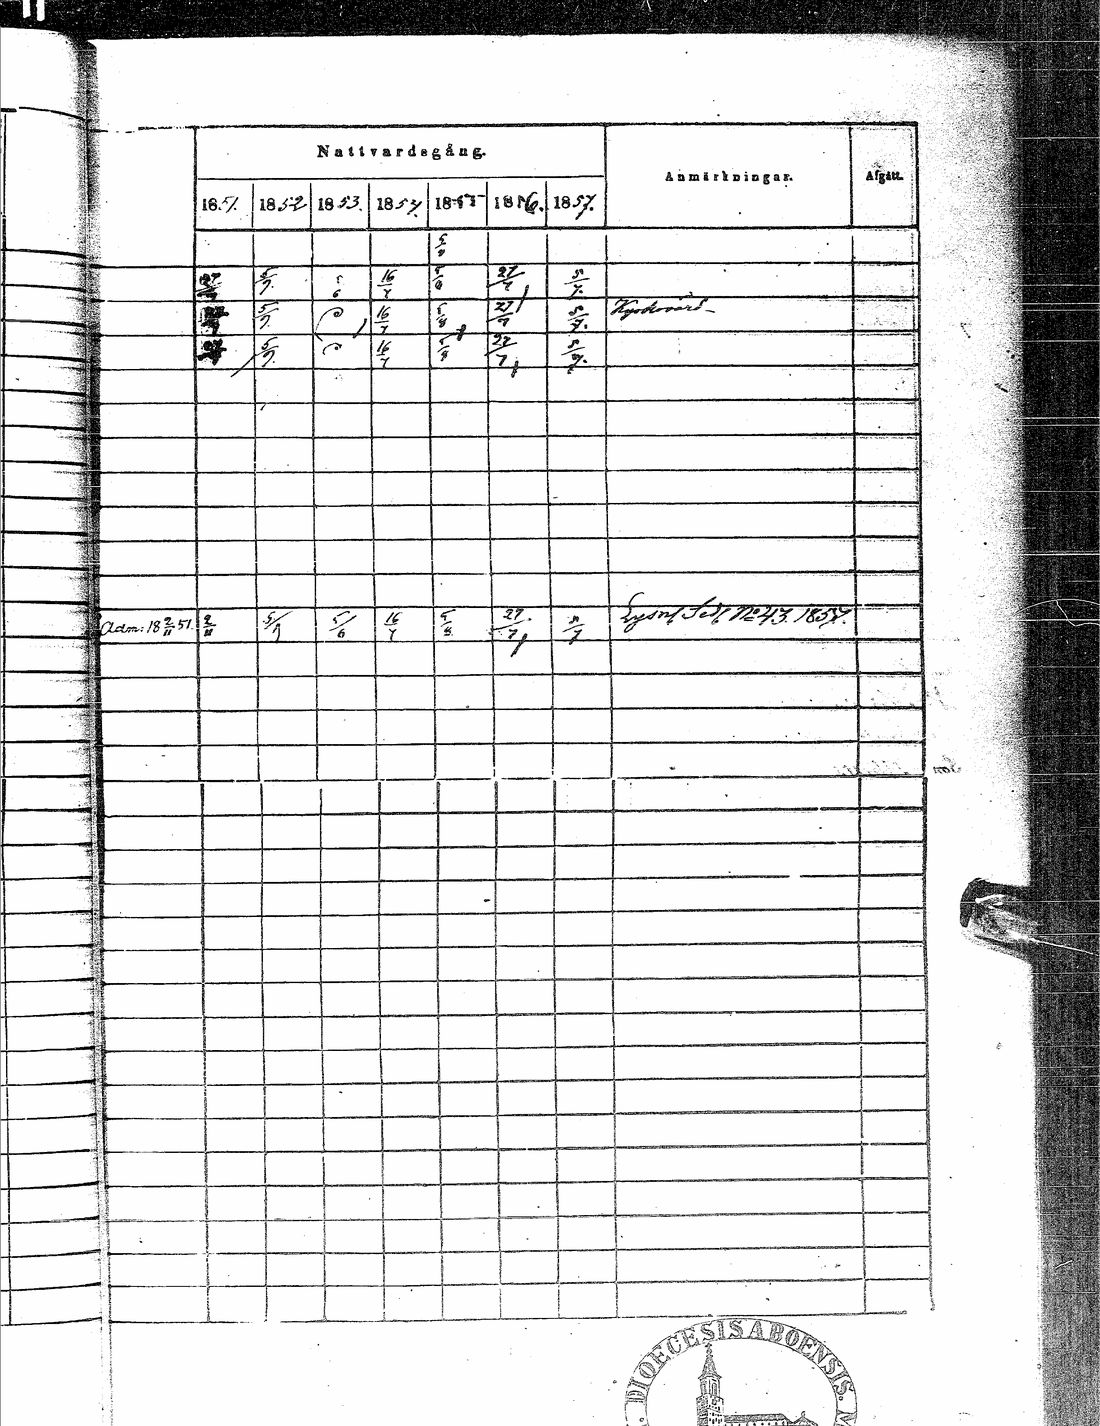 Nattvardsgång.
Anmärkningar.
Afgått.
1851. 1852 1853. 1854. 1855 1856. 1857.
5/8
27/7 5/7. 5/6 16/7 5/8 27/7 5/7.
5/7. 16/7 5/8 27/7 5/7. Kyrkovärd
5/7. 16/7 5/8 27/7 5/7.
Adm: 18 2/11 51. 2/11 5/7 5/6 16/7 5/8 27/7 5/7 Lysn. Sed. No 43. 1857.
DIOECESIS ABOENSIS.